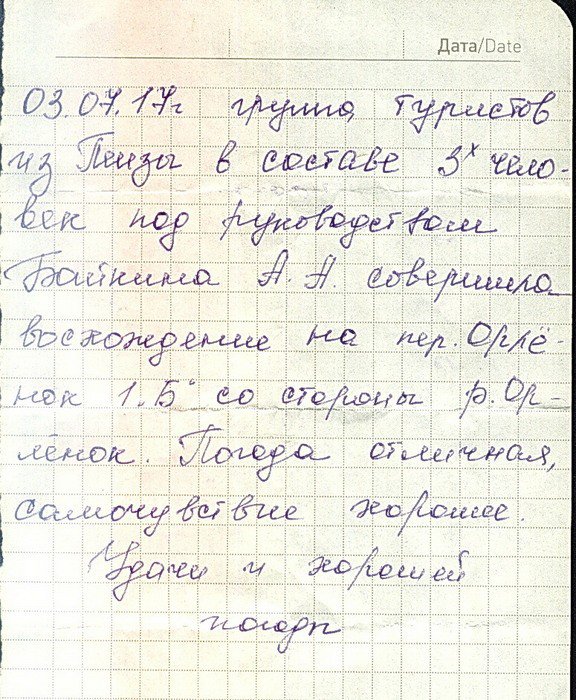 Дата/Date
03.07.17г группа туристов
из Пензы в составе 3х чело-
век под руководством
Байкина А.А. совершила
восхождение на пер. Орлё-
нок 1.Б° со стороны р. Ор-
лёнок. Погода отличная,
самочувствие хорошее.
Удачи и хорошей
погоды